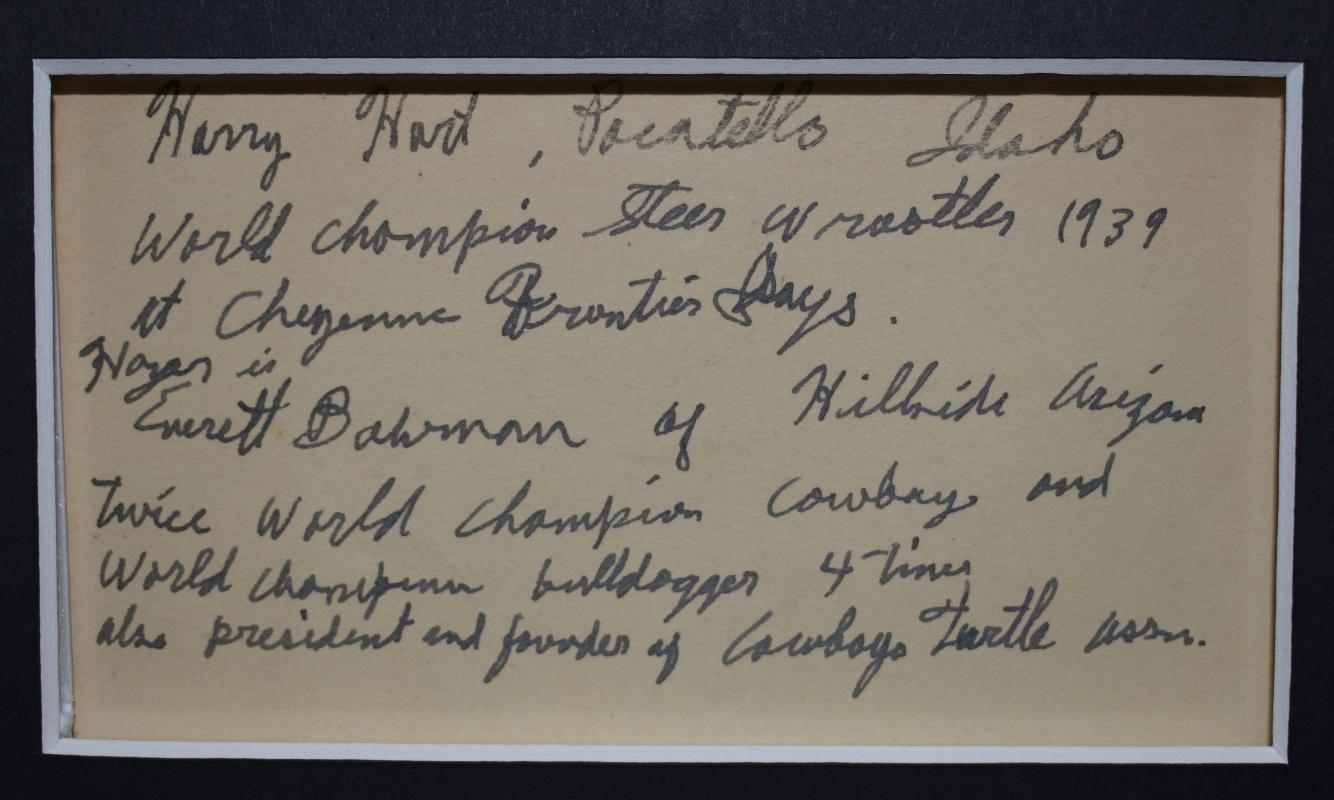 Harry Hart, Pocatello Idaho
World champion Steer Wrastler 1939
at Cheyenne Frontier Days.
Hazer is
Everett Bowman of Hillside Arizona
twice World champion Cowboy and
World champion bulldogger 4 times
also president and founder of Cowboys Turtle assn.